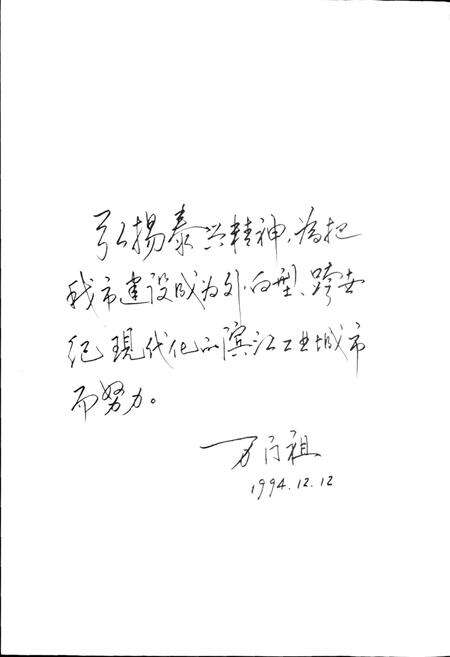 弘揚泰兴精神，為把
我市建设成为外向型、跨世
纪現代化的滨江工业城市
而努力。
万行祖
1994.12.12